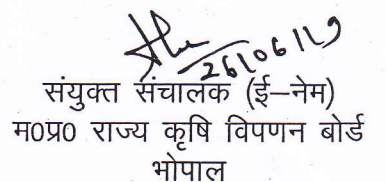 26/06/19
संयुक्त संचालक (ई–नेम)
म0प्र0 राज्य कृषि विपणन बोर्ड
भोपाल